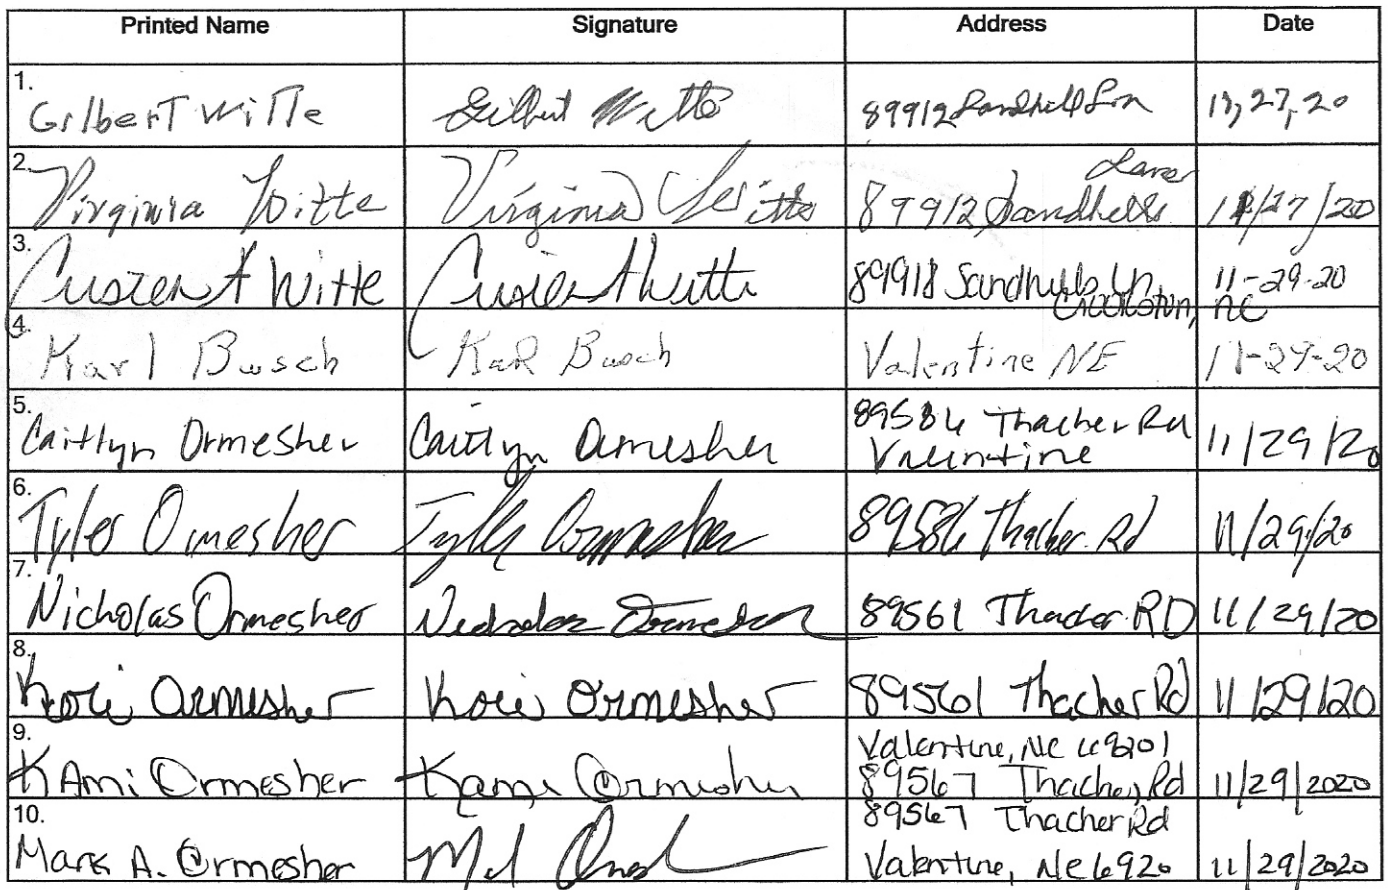 Printed Name Signature Address Date
1. Gilbert Witte Gilbert Witte 89912 Sandhill Ln 11,27,20
2. Virginia Witte Virginia Witte 89912 Sandhills Lane 11/27/20
3. Witte Witte 89918 Sandhills Ln 11-29-20
Crookston, NE
4. Karl Busch Karl Busch Valentine NE 11-29-20
5. Caitlyn Ormesher Caitlyn Ormesher 89586 Thacher Rd 11/29/20
Valentine
6. Tyler Ormesher Tyler Ormesher 89586 Thacher Rd 11/29/20
7. Nicholas Ormesher Nicholas Ormesher 89561 Thacher RD 11/29/20
8. Kori Ormesher Kori Ormesher 89561 Thacher Rd 11/29/20
Valentine, NE 69201
9. KAmi Ormesher Kami Ormesher 89567 Thacher Rd 11/29/2020
89567 Thacher Rd
10. Mark A. Ormesher Valentine, Ne 6920 11/29/2020